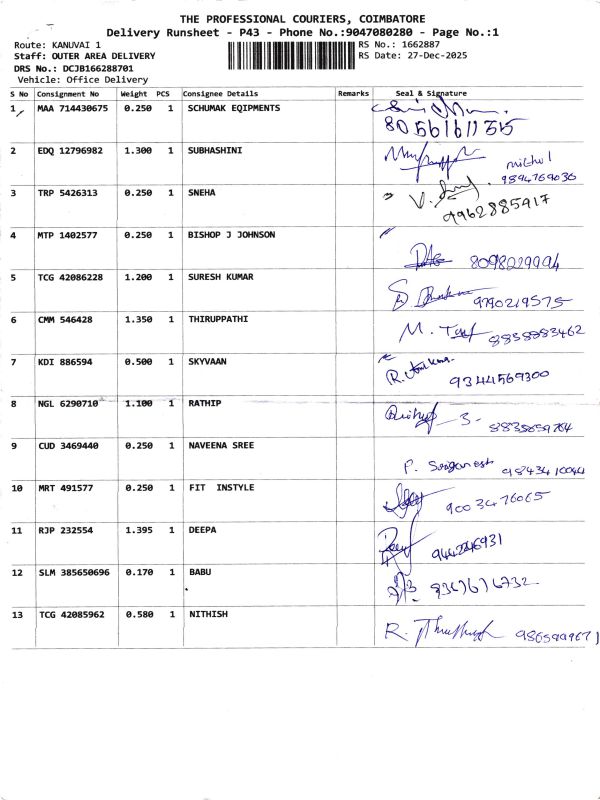 THE PROFESSIONAL COURIERS, COIMBATORE
Delivery Runsheet - P43 - Phone No.:9047080280 - Page No.:1
Route: KANUVAI 1
Staff: OUTER AREA DELIVERY
DRS No.: DCJB166288701
Vehicle: Office Delivery
RS No.: 1662887
RS Date: 27-Dec-2025
S No Consignment No Weight PCS Consignee Details Remarks Seal & Signature
1 MAA 714430675 0.250 1 SCHUMAK EQIPMENTS
2 EDQ 12796982 1.300 1 SUBHASHINI 9894769036
3 TRP 5426313 0.250 1 SNEHA 9962885917
4 MTP 1402577 0.250 1 BISHOP J JOHNSON 8098029994
5 TCG 42086228 1.200 1 SURESH KUMAR 9790219575
6 CMM 546428 1.350 1 THIRUPPATHI 8838883462
7 KDI 886594 0.500 1 SKYVAAN 9344569300
8 NGL 6290710 1.100 1 RATHIP
9 CUD 3469440 0.250 1 NAVEENA SREE 9843410044
10 MRT 491577 0.250 1 FIT INSTYLE 9003476065
11 RJP 232554 1.395 1 DEEPA
12 SLM 385650696 0.170 1 BABU
13 TCG 42085962 0.580 1 NITHISH